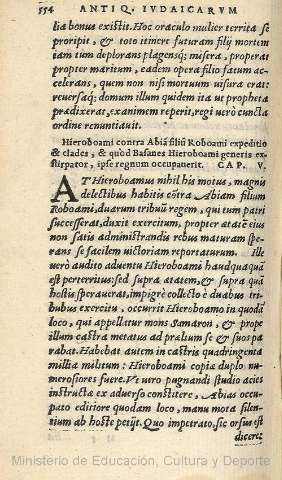 554 ANTIQ. IVDAICARVM
dia bonus existit. Hoc oraculo mulier territa se
proripit, & toto itinere futuram filij mortem
iam tum deplorans plagensq́; misera, properat
propter maritum, eadem opera filio fatum ac-
celerans, quem non nisi mortuum uisura erat:
reuersaq́; domum illum quidem ita ut propheta
prædixerat, exanimem reperit, regi uerò cuncta
ordine renuntiauit.
Hieroboami contra Abiã filiũ Roboami expeditio
& clades, & quòd Basanes Hieroboami generis ex-
stirpator, ipse regnum occupauerit. CAP. V.
AT Hieroboamus nihil his motus, magnis
delectibus habitis cõtra Abiam filium
Roboami, duarum tribuũ regem, qui tum patri
successerat, duxit exercitum, propter ætatẽ eius
non satis administrandis rebus maturam spe-
rans se facilem uictoriam reportaturum. Ille
uerò audito aduentu Hieroboami haudquaquã
est perterritus: sed supra ætatem, & supra quã
hostis sperauerat, impigrè collecto è duabus tri-
bubus exercitu, occurrit Hieroboamo in quodã
loco, qui appellatur mons Samaron, & prope
illum castra metatus ad prælium se & suos pa
rabat. Habebat autem in castris quadringenta
millia militum: Hieroboami copia duplo nu-
merosiores fuere. Vt uero pugnandi studio acies
instructæ ex aduerso constitere, Abias occu-
pato editiore quodam loco, manu mota silen-
tium ab hoste petijt. Quo impetrato, sic orsus est
dicere:
Ministerio de Educación, Cultura y Deporte